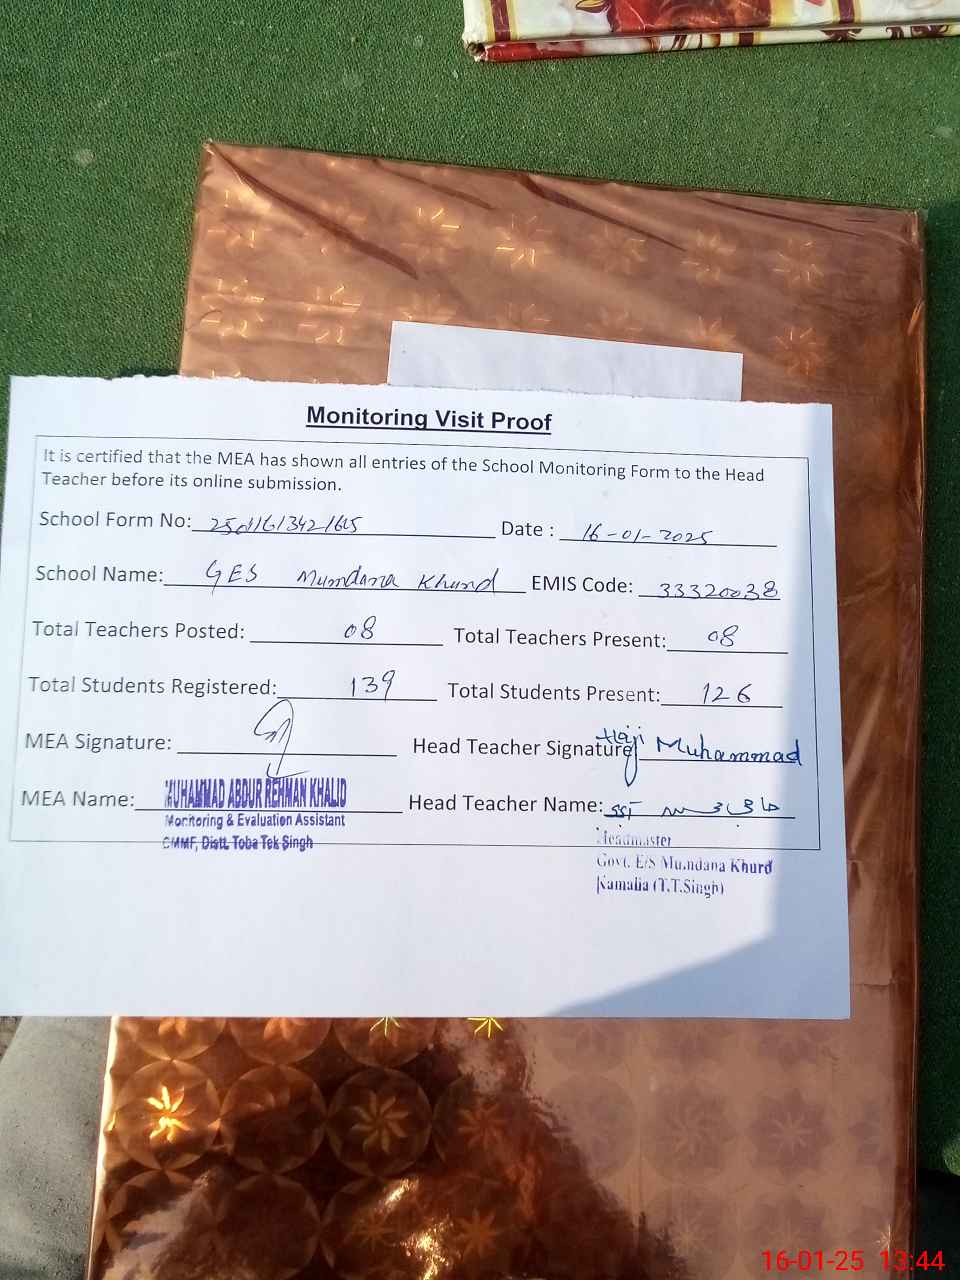 Monitoring Visit Proof
It is certified that the MEA has shown all entries of the School Monitoring Form to the Head
Teacher before its online submission.
School Form No: Date : 16-01-2025
School Name: GES Mundana Khurd EMIS Code: 33320038
Total Teachers Posted: 08 Total Teachers Present: 08
Total Students Registered: 139 Total Students Present: 126
MEA Signature: Head Teacher Signature Haji Muhammad
MEA Name: MUHAMMAD ABDUR REHMAN KHALID Head Teacher Name: SST
Monitoring & Evaluation Assistant
CMMF, Distt. Toba Tek Singh
Headmaster
Govt. E/S Mundana Khurd
Kamalia (T.T.Singh)
16-01-25 13:44